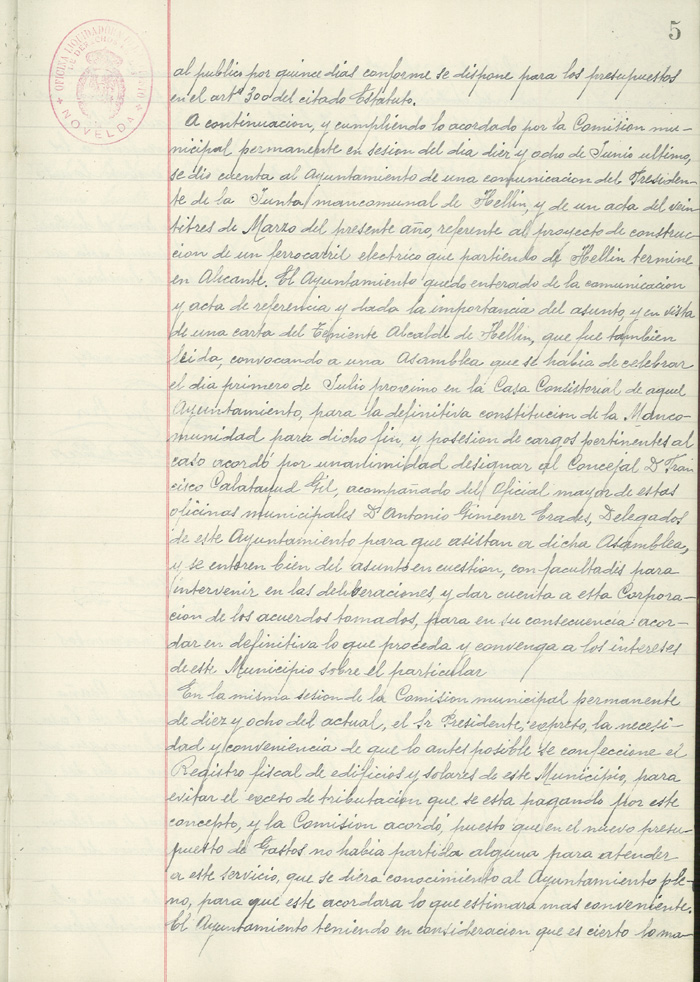 5
OFICINA LIQUIDADORA
DE DERECHOS
NOVELDA
al publico por quince dias conforme se dispone para los presupuestos
en el artº 300 del citado Estatuto.
A continuacion, y cumpliendo lo acordado por la Comision mu-
nicipal permanente en sesion del dia diez y ocho de Junio ultimo,
se dio cuenta al Ayuntamiento de una comunicacion del Presiden-
te de la Junta mancomunal de Hellin, y de un acta del vein
titres de Marzo del presente año, referente al proyecto de construc-
cion de un ferrocarril electrico que partiendo de Hellin termine
en Alicante. El Ayuntamiento quedo enterado de la comunicacion
y acta de referencia y dada la importancia del asunto, y en vista
de una carta del Teniente Alcalde de Hellin, que fue tambien
leida, convocando a una Asamblea que se habia de celebrar
el dia primero de Julio proximo en la Casa Consistorial de aquel
Ayuntamiento, para la definitiva constitucion de la Manco-
munidad para dicho fin, y posesion de cargos pertinentes al
caso acordó por unanimidad designar al Concejal D. Fran
cisco Calatayud Gil, acompañado del Oficial mayor de estas
oficinas municipales D. Antonio Gimener Erades, Delegados
de este Ayuntamiento para que asistan a dicha Asamblea,
y se enteren bien del asunto en cuestion, con facultades para
intervenir en las deliberaciones, y dar cuenta a esta Corpora-
cion de los acuerdos tomados, para en su consecuencia acor-
dar en definitiva lo que proceda y convenga a los intereses
de este Municipio sobre el particular
En la misma sesion de la Comision municipal permanente
de diez y ocho del actual, el Sr Presidente, expreso, la necesi-
dad y conveniencia de que lo antes posible se confeccione el
Registro fiscal de edificios y solares de este Municipio, para
evitar el exceso de tributacion que se esta pagando por este
concepto, y la Comision acordó, puesto que en el nuevo presu-
puesto de Gastos no habia partida alguna para atender
a este servicio, que se diera conocimiento al Ayuntamiento ple-
no, para que este acordara lo que estimara mas conveniente.
El Ayuntamiento teniendo en consideracion que es cierto lo ma-